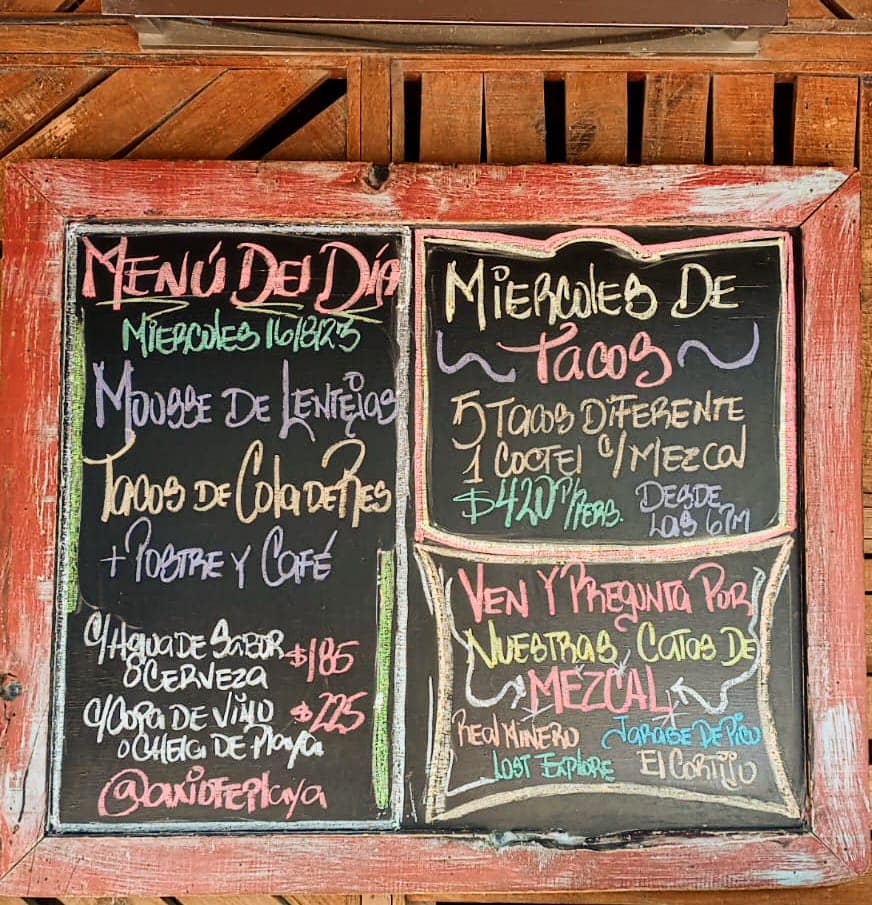 MENÚ DEl DÍA
MIERCOLES 16/8/23
MOUSSE DE LENTEJAS
TACOS DE COLA DE RES
+ POSTRE Y CAFÉ
C/AGUA DE SABOR
O CERVEZA $185
C/COPA DE VINO $225
O CHELA DE PLAYA
MIERCOLES DE
TACOS
5 TACOS DIFERENTE
1 COCTEl C/MEZCAL
$420 P/PERS. DESDE
LAS 6PM
VEN Y PREGUNTA POR
NUESTRAS CATAS DE
MEZCAL
REAL MINERO
LOST EXPLORE EL CORTIJO